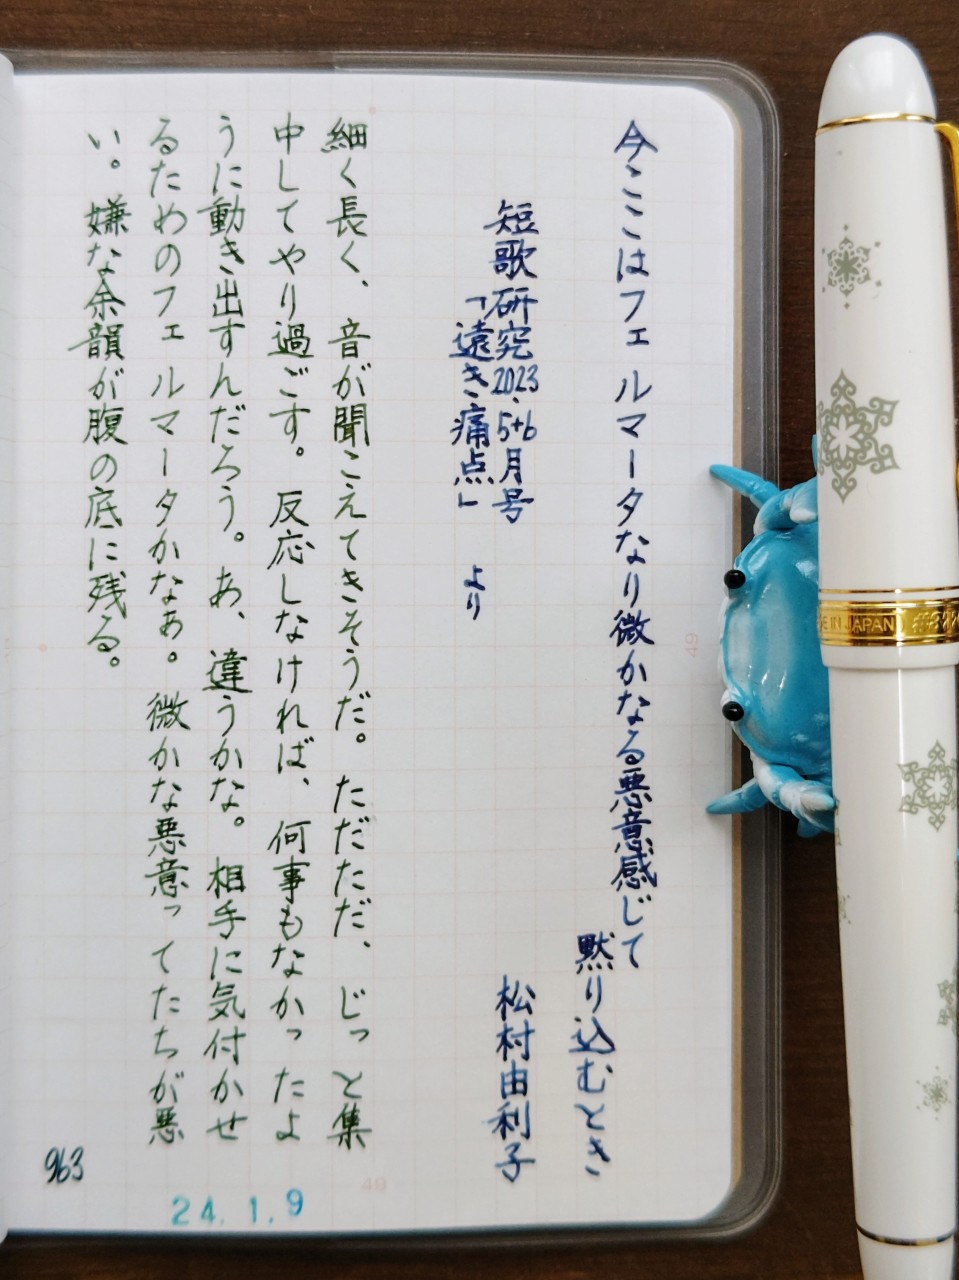 今ここはフェルマータなり微かなる悪意感じて
黙り込むとき
短歌研究2023.5+6月号
「遠き痛点」 より
松村由利子
細く長く、音が聞こえてきそうだ。ただただ、じっと集
中してやり過ごす。反応しなければ、何事もなかったよ
うに動き出すんだろう。あ、違うかな。相手に気付かせ
るためのフェルマータかなぁ。微かな悪意ってたちが悪
い。嫌な余韻が腹の底に残る。
963
24.1.9
49
49
E IN JAPAN